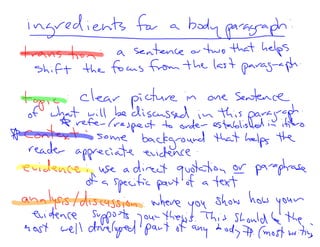 ingredients for a body paragraph:
transition a sentence or two that helps
shift the focus from the last paragraph.
topic clear picture in one sentence
of what will be discussed in this paragraph
* refer/respect to order established in intro
* context some background that helps the
reader appreciate evidence.
evidence use a direct quotation or paraphrase
of a specific part of a text
analysis/discussion where you show how your
evidence supports your thesis. This should be the
most well developed part of any body ¶ (most